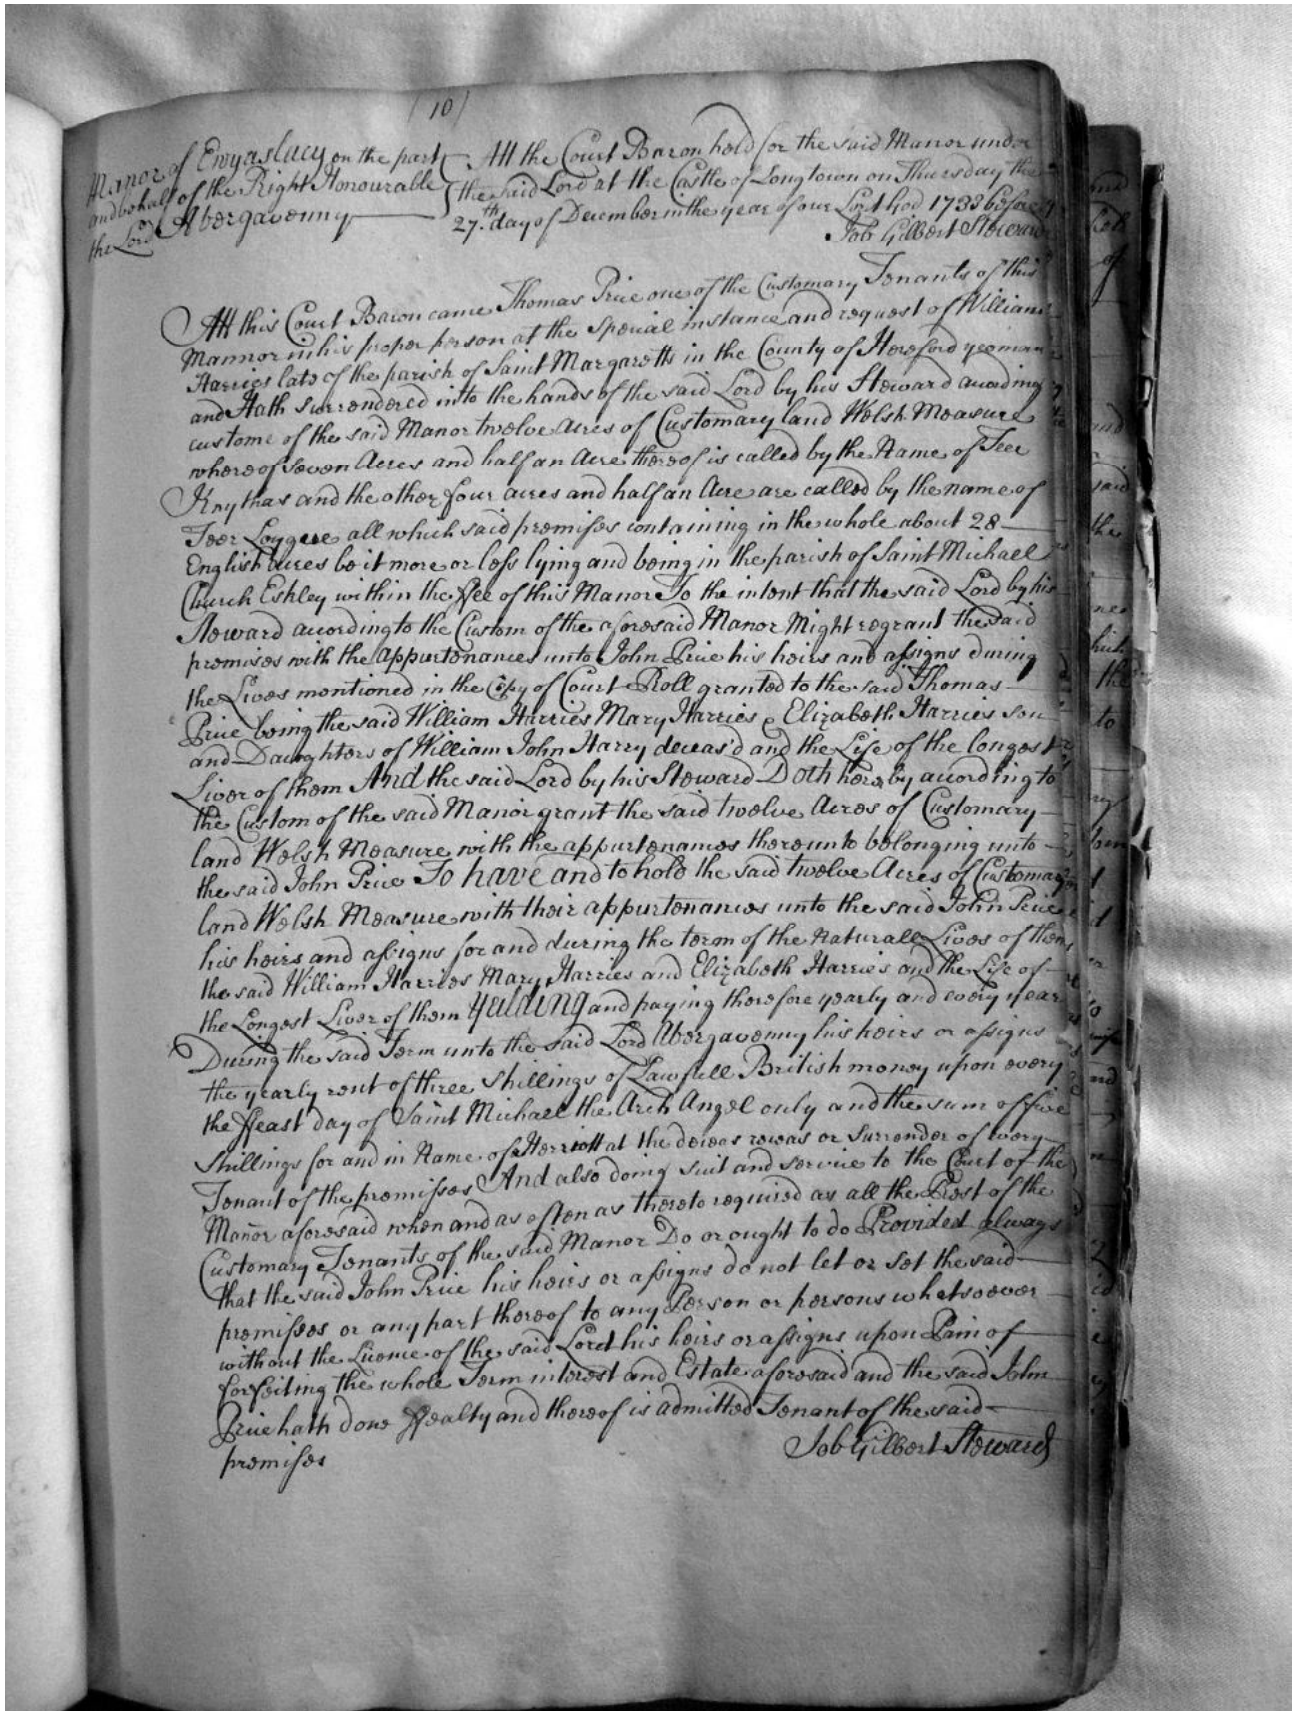 (10)
Manor of Ewyaslacy on the part
and behalf of the Right Honourable
the Lord Abergavenny
Att the Court Baron held for the said Manor under
the said Lord at the Castle of Longtown on Thursday the
27.th day of December in the year of our Lord God 1733 before
Job Gilbert Steward
Att this Court Baron came Thomas Price one of the Customary Tenants of this
Mannor in his proper person at the Special instance and request of William
Harries late of the parish of Saint Margaretts in the County of Hereford yeoman
and Hath surrendered into the hands of the said Lord by his Steward according
custome of the said Manor twelve acres of Customary land Welsh Measure
whereof seven Acres and half an Acre thereof is called by the Name of Teer
Knythas and the other four acres and half an Acre are called by the name of
Teer Loygere all which said premises containing in the whole about 28
English Acres be it more or less lying and being in the parish of Saint Michael
Church Eskley within the ffee of this Manor To the intent that the said Lord by his
Steward according to the Custom of the aforesaid Manor Might regrant the said
premises with the Appurtenances unto John Price his heirs and assigns during
the Lives mentioned in the Copy of Court Roll granted to the said Thomas
Price being the said William Harries Mary Harries & Elizabeth Harries son
and Daughters of William John Harry deceas'd and the Life of the longest
Liver of them And the said Lord by his Steward Doth hereby according to
the Custom of the said Manor grant the said twelve Acres of Customary
land Welsh Measure with the appurtenances thereunto belonging unto
the said John Price To have and to hold the said twelve Acres of Customary
land Welsh Measure with their appurtenances unto the said John Price
his heirs and assigns for and during the term of the Naturall Lives of them
the said William Harries Mary Harries and Elizabeth Harries and the Life of
the Longest Liver of them Yeilding and paying therefore yearly and every year
During the said Term unto the said Lord Abergavenny his heirs or assigns
the yearly rent of three Shillings of Lawfull British money upon every
the ffeast day of Saint Michael the Arch Angel only and the sum of five
Shillings for and in Name of Herriott at the decease or Surrender of every
Tenant of the premisses And also doing suit and service to the Court of the
Manor aforesaid when and as often as thereto required as all the Rest of the
Customary Tenants of the said Manor Do or ought to do Provided always
that the said John Price his heirs or assigns do not let or set the said
premisses or any part thereof to any Person or persons whatsoever
without the Licence of the said Lord his heirs or assigns upon Pain of
forfeiting the whole Term interest and Estate aforesaid and the said John
Price hath done ffealty and thereof is admitted Tenant of the said
premises
Job Gilbert Steward